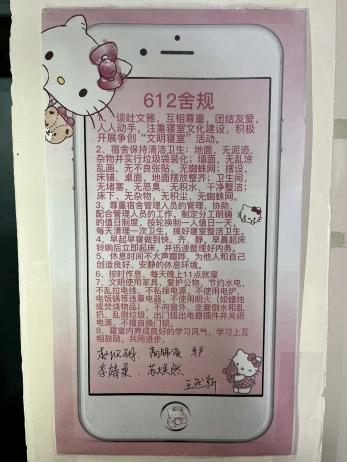 612舍规
1、谈吐文雅，互相尊重，团结友爱，
人人动手，注重寝室文化建设，积极
开展争创“文明寝室”活动。
2、宿舍保持清洁卫生：地面，无泥迹、
杂物并实行垃圾袋装化；墙面，无乱涂
乱画、无不良张贴、无蜘蛛网；摆设，
床铺、桌面、地面摆放整齐；卫生间，
无堵塞，无恶臭、无积水、干净整洁；
床下，无杂物，无积尘，无蜘蛛网。
3、尊重宿舍管理人员的管理，协助、
配合管理人员的工作，制定分工明确
的值日制度，按轮换制一人值日一天，
每天清理一次卫生，搞好寝室整洁卫生。
4、早起早寝做到快、齐、静，早晨起床
铃响后立即起床，并迅速整理好内务。
5、休息时间不大声喧哗，为他人和自己
创造良好，安静的休息环境。
6、按时作息，每天晚上11点就寝
7、文明使用家具，爱护公物，节约水电，
不乱拉电线、不私接电源、不使用电炉、
电饭锅等违章电器，不使用明火（如蜡烛
或焚烧物品），不向窗外、走廊倒水和乱
扔、乱倒垃圾，出门拔出电器插件并关闭
电源，不擅自换门锁。
8、寝室内养成良好的学习风气，学习上互
相鼓励，共同进步。